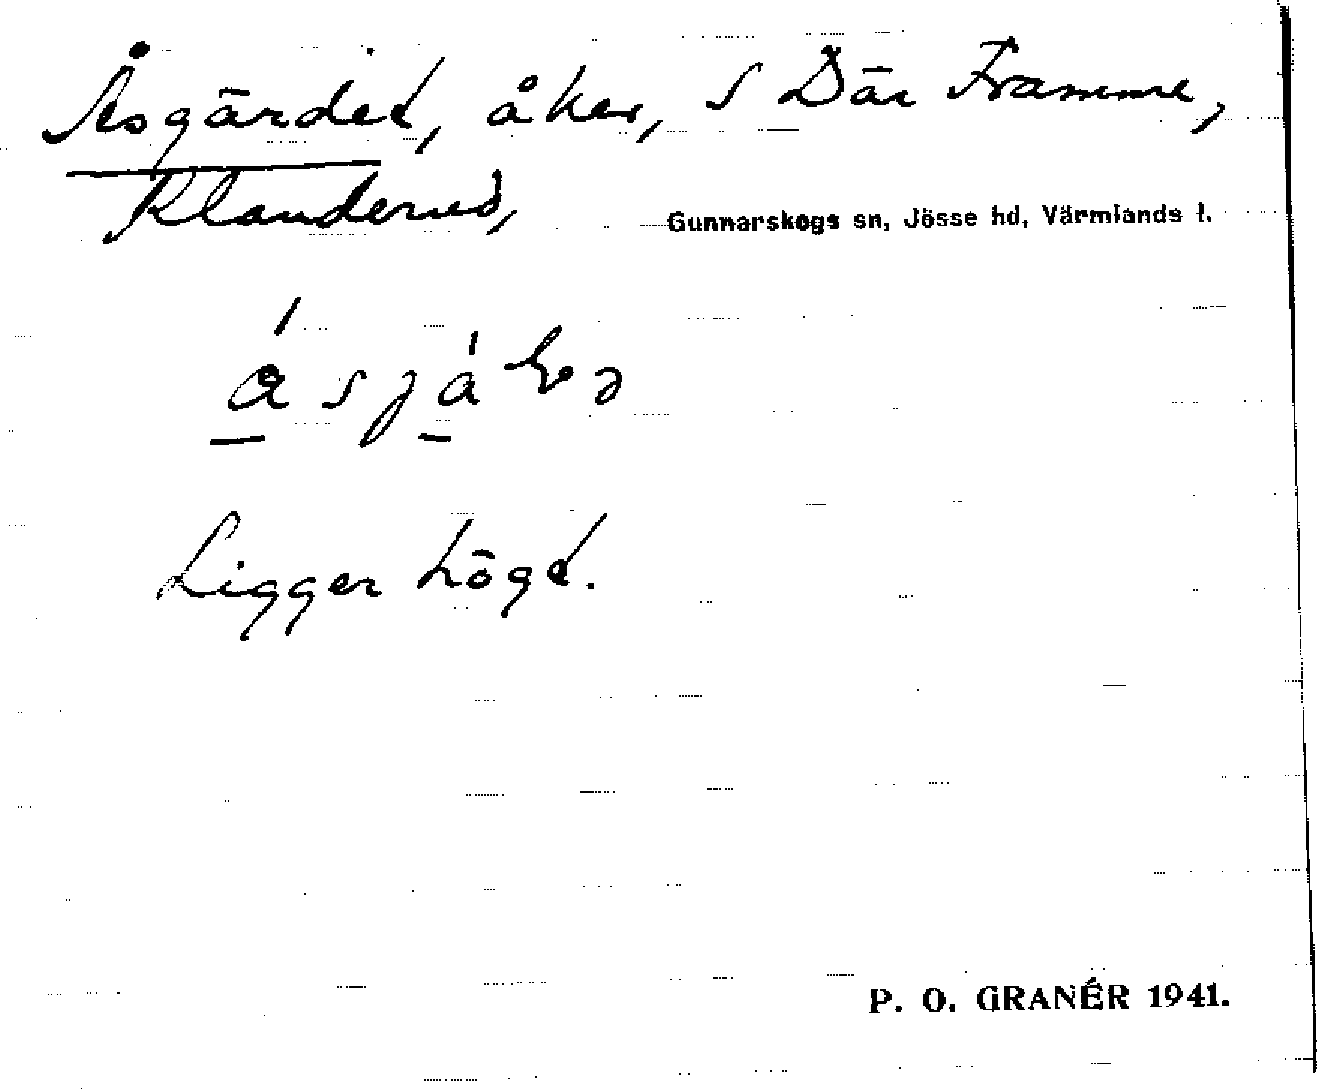 Åsgärdet, åker, S Där Framme,
Klanderud,
Gunnarskogs sn, Jösse hd, Värmlands l.
Ligger högt.
P. O. GRANÉR 1941.